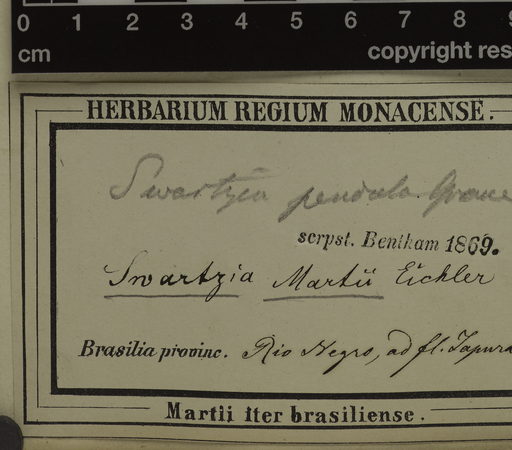 0 1 2 3 4 5 6 7 8 9
cm copyright res
HERBARIUM REGIUM MONACENSE.
Swartzia pendula
scrpst. Bentham 1869.
Swartzia Martii Eichler
Brasilia provinc. Rio Negro, ad fl. Japura
Martii iter brasiliense.